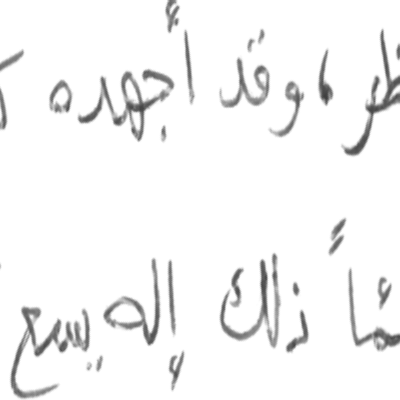 ظر ، وقد أجهده
ئماً ذلك إله يسع